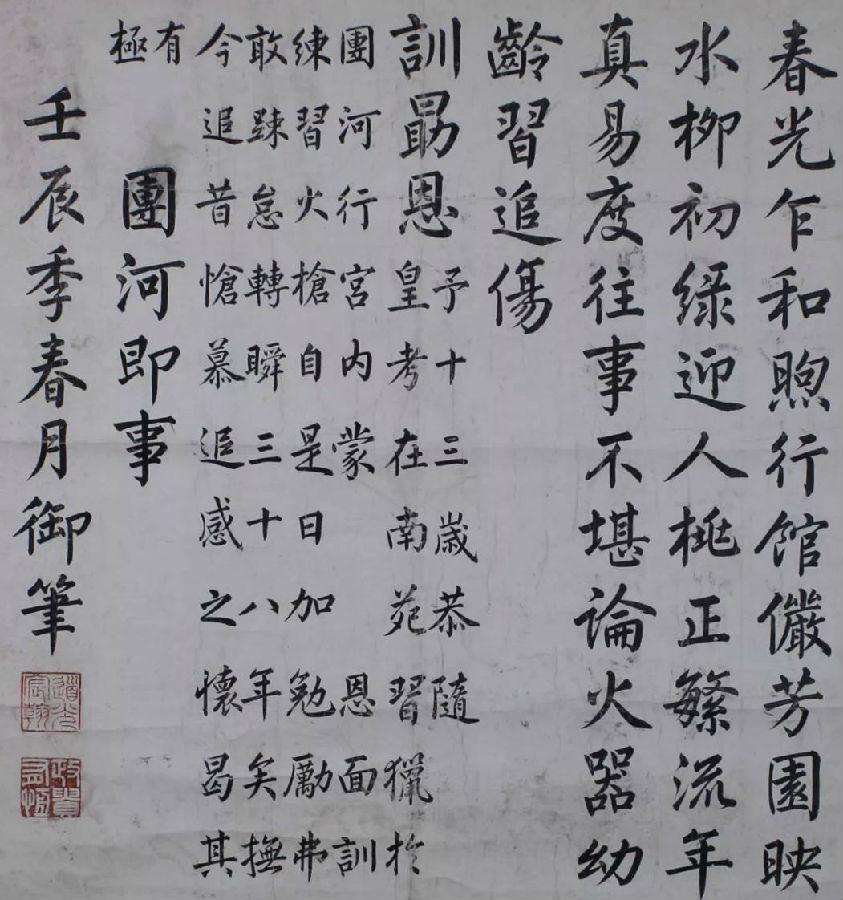 春光乍和煦行館儼芳園映
水柳初綠迎人桃正繁流年
真易度往事不堪論火器幼
齡習追傷
訓勗恩
予十三歲恭隨
皇考在南苑習獵於
團河行宮内蒙 恩面訓
練習火槍自是日加勉勵弗
敢踈怠轉瞬三十八年矣撫
今追昔愴慕追感之懷曷其
有
極
團河即事
壬辰季春月御筆
道光宸翰
政貴有恆